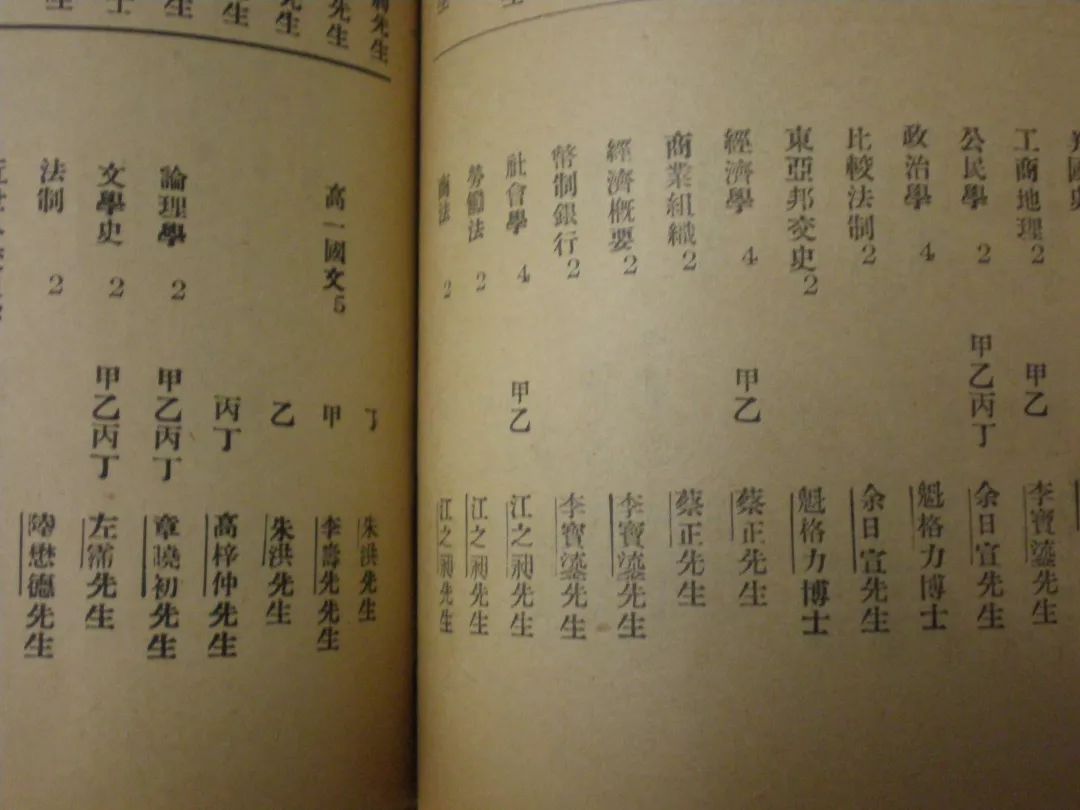 工商地理 2 甲乙 李寶鎏先生
公民學 2 甲乙丙丁 余日宣先生
政治學 4 魁格力博士
比較法制 2 余日宣先生
東亞邦交史 2 魁格力博士
經濟學 4 甲乙 蔡正先生
商業組織 2 蔡正先生
經濟概要 2 李寶鎏先生
幣制銀行 2 李寶鎏先生
社會學 4 甲乙 江之昶先生
勞働法 2 江之昶先生
商法 2 江之昶先生
丁 朱洪先生
高一國文 5 甲 李壽先先生
乙 朱洪先生
丙丁 高梓仲先生
論理學 2 甲乙丙丁 章曉初先生
文學史 2 甲乙丙丁 左霈先生
法制 2 陸懋德先生